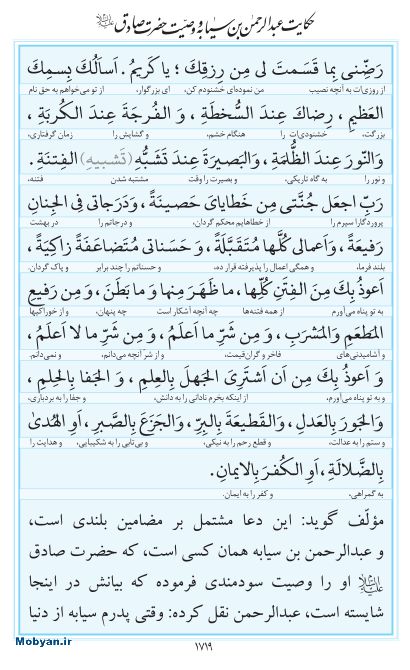 حکایت عبدالرحمن بن سیابه و وصیت حضرت صادق علیه‌السلام
رَضِّنی بِما قَسَمتَ لی مِن رِزقِكَ ؛ یا كَریمُ . اَسأَلُكَ بِسمِكَ
از روزی‌ات به آنچه نصیب من نموده‌ای خشنودم کن، ای بزرگوار، از تو می‌خواهم به حق نام
العَظیمِ ، رِضاكَ عِندَ السُّخطَةِ ، وَ الفُرجَةَ عِندَ الكُربَةِ ،
بزرگت، خشنودی‌ات را هنگام خشم، و گشایش را زمان گرفتاری،
وَالنّورَ عِندَ الظُّلمَةِ ، وَالبَصیرَةَ عِندَ تَشَبُّهِ (تَشبیهِ) الفِتنَةِ .
و نور را به گاه تاریکی، و بصیرت را وقت مشتبه شدن فتنه،
رَبِّ اجعَل جُنَّتی مِن خَطایایَ حَصینَةً ، وَدَرَجاتی فِی الجِنانِ
پروردگارا سپرم را از خطاهایم محکم گردان، و درجاتم را در بهشت
رَفیعَةً ، وَاَعمالی كُلَّها مُتَقَبَّلَةً ، وَ حَسَناتی مُتَضاعَفَةً زاكِیَةً ،
بلند فرما، و همگی اعمال را پذیرفته قرار ده، و حسناتم را چند برابر و پاک گردان.
اَعوذُ بِكَ مِنَ الفِتَنِ كُلِّها ، ما ظَهَرَ مِنها وَ ما بَطَنَ ، وَ مِن رَفیعِ
به تو پناه می‌آورم از همه فتنه‌ها چه آنچه آشکار است چه پنهان، و از خوراکیها
المَطعَمِ وَالمَشرَبِ ، وَ مِن شَرِّ ما اَعلَمُ ، وَ مِن شَرِّ ما لا اَعلَمُ ،
و آشامیدنی‌های فاخر و گران‌قیمت، و از شر آنچه می‌دانم، و نمی‌دانم.
وَ اَعوذُ بِكَ مِن اَن اَشتَرِیَ الجَهلَ بِالعِلمِ ، وَ الجَفا بِالحِلمِ ،
و به تو پناه می‌آورم، از اینکه بخرم نادانی را به دانش، و جفا را به بردباری،
وَالجَورَ بِالعَدلِ ، وَالقَطیعَةَ بِالبِرِّ ، وَالجَزَعَ بِالصَّبرِ ، اَوِ الهُدیٰ
و ستم را به عدالت، و قطع رحم را به نیکی، و بی‌تابی را به شکیبایی، و هدایت را
بِالضَّلالَةِ ، اَوِ الكُفرَ بِالایمانِ .
به گمراهی، و کفر را به ایمان.
مؤلّف گوید: این دعا مشتمل بر مضامین بلندی است،
و عبدالرحمن بن سیابه همان کسی است، که حضرت صادق
علیه‌السلام او را وصیت سودمندی فرموده که بیانش در اینجا
شایسته است، عبدالرحمن نقل کرده: وقتی پدرم سیابه از دنیا
Mobyan.ir
۱۷۱۹